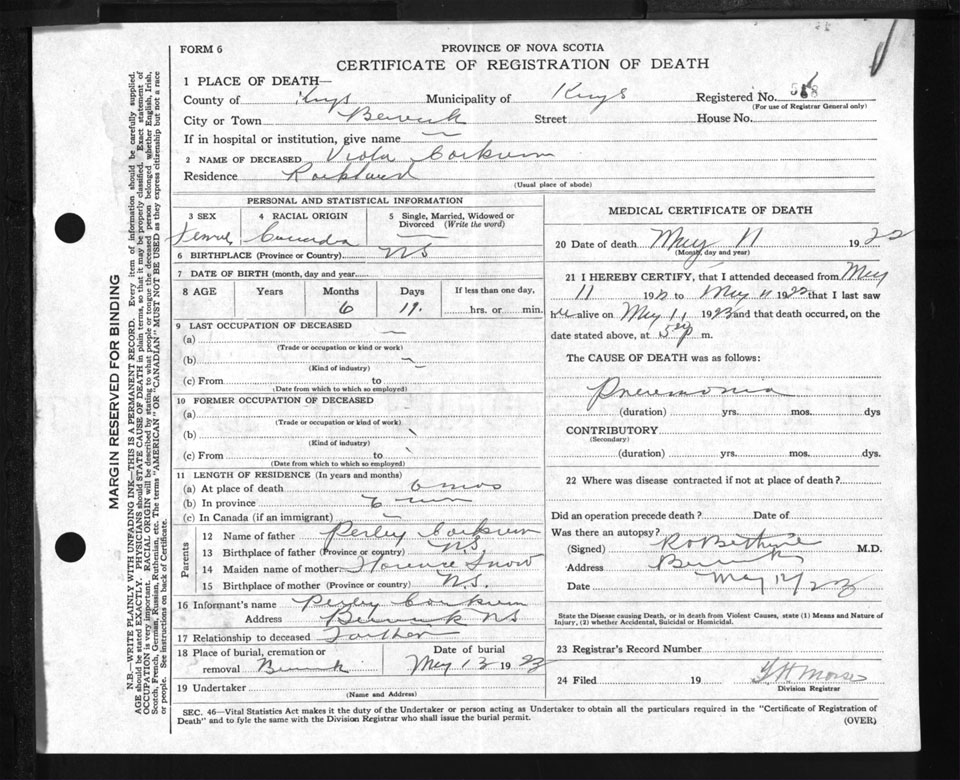 FORM 6
PROVINCE OF NOVA SCOTIA
CERTIFICATE OF REGISTRATION OF DEATH
1 PLACE OF DEATH—
County of Kings Municipality of Kings Registered No.
(For use of Registrar General only)
City or Town Berwick Street House No.
If in hospital or institution, give name
2 NAME OF DECEASED Viola Corkum
Residence
(Usual place of abode)
PERSONAL AND STATISTICAL INFORMATION
3 SEX 4 RACIAL ORIGIN 5 Single, Married, Widowed or Divorced (Write the word)
Female Canada
6 BIRTHPLACE (Province or Country) NS
7 DATE OF BIRTH (month, day and year)
8 AGE Years Months Days If less than one day,
6 19. hrs. or min.
9 LAST OCCUPATION OF DECEASED
(a)
(Trade or occupation or kind or work)
(b)
(Kind of industry)
(c) From to
(Date from which to which so employed)
10 FORMER OCCUPATION OF DECEASED
(a)
(Trade or occupation or kind of work)
(b)
(Kind of industry)
(c) From to
(Date from which to which so employed)
11 LENGTH OF RESIDENCE (In years and months)
(a) At place of death mos
(b) In province 6
(c) In Canada (if an immigrant)
Parents
12 Name of father Perley Corkum
13 Birthplace of father (Province or country) N.S
14 Maiden name of mother Florence Snow
15 Birthplace of mother (Province or country) N.S.
16 Informant's name Perley Corkum
Address Berwick NS
17 Relationship to deceased Father
18 Place of burial, cremation or removal Berwick
Date of burial May 13 1923
19 Undertaker
(Name and Address)
MEDICAL CERTIFICATE OF DEATH
20 Date of death May 11 192
(Month, day and year)
21 I HEREBY CERTIFY, that I attended deceased from May
11 19 to May 11 19 that I last saw
h alive on May 11 1923 and that death occurred, on the
date stated above, at 5 p m.
The CAUSE OF DEATH was as follows:
Pneumonia
(duration) yrs. mos. dys
CONTRIBUTORY
(Secondary)
(duration) yrs. mos. dys.
22 Where was disease contracted if not at place of death?
Did an operation precede death? Date of
Was there an autopsy?
(Signed) M.D.
Address Berwick
Date May 12/23
State the Disease causing Death, or in death from Violent Causes, state (1) Means and Nature of
Injury, (2) whether Accidental, Suicidal or Homicidal.
23 Registrar's Record Number
24 Filed 19 Morse
Division Registrar
SEC. 46—Vital Statistics Act makes it the duty of the Undertaker or person acting as Undertaker to obtain all the particulars required in the "Certificate of Registration of
Death" and to fyle the same with the Division Registrar who shall issue the burial permit. (OVER)
MARGIN RESERVED FOR BINDING
N.B.—WRITE PLAINLY WITH UNFADING INK—THIS IS A PERMANENT RECORD. Every item of information should be carefully supplied.
AGE should be stated EXACTLY. PHYSICIANS should STATE CAUSE OF DEATH in plain terms, so that it may be properly classified. Exact statement of
OCCUPATION is very important. RACIAL ORIGIN will be described by stating to what people or tongue the deceased person belonged whether English, Irish,
Scotch, French, German, Russian, Ruthenian, etc. The terms "AMERICAN" OR "CANADIAN" MUST NOT BE USED as they express citizenship but not a race
or people. See instructions on back of Certificate.